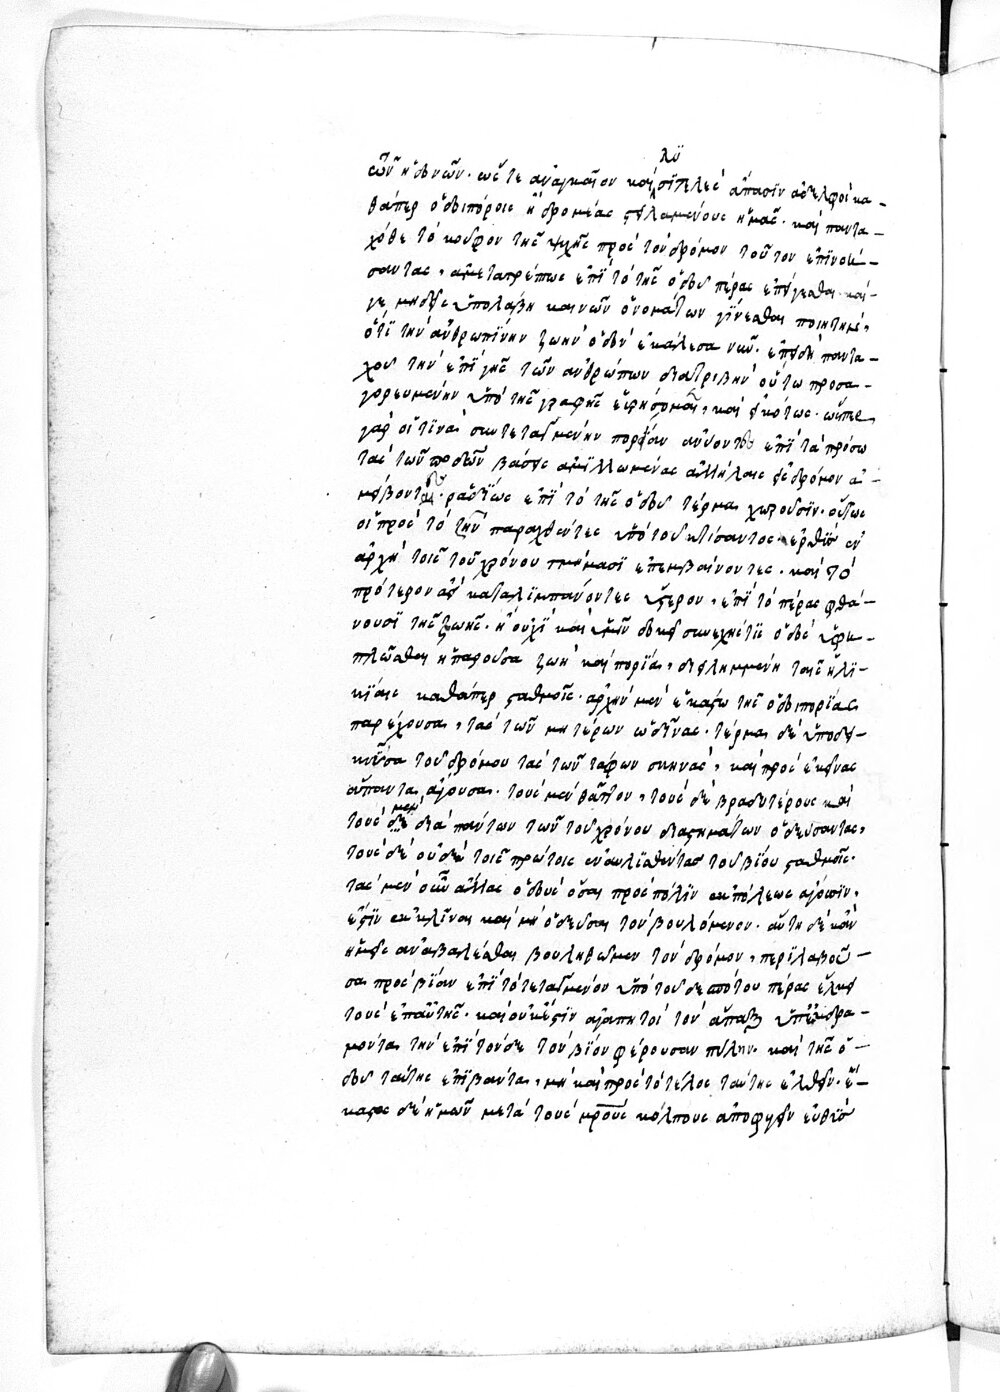 ὧν ἡδονῶν· ὥς τε ἀναγκαῖον καὶ λυσιτελὲς ἅπασιν ἀδελφοὶ κα-
θάπερ ὁδοιπόροις ἢ δρομέας στελλομένους ἡμᾶς· καὶ παντα-
χόθε τὸ κοῦφον τῆς ψυχῆς πρὸς τὸν δρόμον τοῦτον ἐπινοή-
σαντας, ἀμετατρέπτως ἐπὶ τὸ τῆς ὁδοῦ πέρας ἐπείγεσθαι· καί
γε μηδεὶς ὑπολάβῃ καινῶν ὀνομάτων γίνεσθαι ποιητήν,
ὅτι τὴν ἀνθρωπίνην ζωὴν ὁδὸν ἐκάλεσα νῦν· ἐπειδὴ παντα-
χοῦ τὴν ἐπὶ γῆς τῶν ἀνθρώπων διατριβὴν οὕτω προσα-
γορευμένην ὑπὸ τῆς γραφῆς εὑρήσομεν, καὶ εἰκότως· ὥσπερ
γὰρ οἵτινες συντεταγμένην πορείαν ἀνύοντες ἐπὶ τὰ πρόσω
τὰς τῶν ποδῶν βάσεις ἁμιλλωμένας ἀλλήλαις εἰς δρόμον ἀ-
μείβοντες· ῥαδίως ἐπὶ τὸ τῆς ὁδοῦ τέρμα χωροῦσιν· οὕτως
οἱ πρὸς τὸ ζῆν παραχθέντες ὑπὸ τοῦ κτίσαντος· εὐθὺς ἐν
ἀρχῇ τοῖς τοῦ χρόνου τμήμασι ἐπεμβαίνοντες· καὶ τὸ
πρότερον ἀεὶ καταλιμπάνοντες ὕστερον, ἐπὶ τὸ πέρας φθά-
νουσι τῆς ζωῆς· ἢ οὐχὶ καὶ ὑμῖν δοκεῖ συνεχής τις ὁδὸς ὑφη-
πλῶσθαι ἡ παροῦσα ζωὴ καὶ πορία, διειλημμένη ταῖς ἡλι-
κίαις καθάπερ σταθμοῖς· ἀρχὴν μὲν ἑκάστῳ τῆς ὁδοιπορίας
παρέχουσα, τὰς τῶν μητέρων ὠδῖνας· τέρμα δὲ ὑποδει-
κνῦσα τοῦ δρόμου τὰς τῶν τάφων σκηνάς, καὶ πρὸς ἐκείνας
ἅπαντα ἄγουσα· τοὺς μὲν θᾶττον, τοὺς δὲ βραδυτέρους καὶ
τοὺς μὲν διὰ πάντων τῶν τοῦ χρόνου διαστημάτων ὁδεύσαντας,
τοὺς δὲ οὐδὲ τοῖς πρώτοις ἐναυλισθέντας τοῦ βίου σταθμοῖς·
τὰς μὲν οὖν ἄλλας ὁδοὺς ὅσαι πρὸς πόλιν ἐκ πόλεως ἄγουσιν,
ἔστιν ἐκκλῖναι καὶ μὴ ὁδεῦσαι τὸν βουλόμενον· αὕτη δὲ κἂν
ἡμεῖς ἀναβαλέσθαι βουληθῶμεν τὸν δρόμον, περιλαβοῦ-
σα πρὸς βίαν ἐπὶ τὸ τεταγμένον ὑπὸ τοῦ δεσπότου πέρας ἕλκει
τοὺς ἐπ' αὐτῆς· καὶ οὐκ ἔστιν ἀγαπητοὶ τὸν ἅπαξ ὑπεκδρα-
μόντα τὴν ἐπὶ τόνδε τὸν βίον φέρουσαν πύλην· καὶ τῆς ὁ-
δοῦ ταύτης ἐπιβάντα, μὴ καὶ πρὸς τὸ τέλος ταύτης ἐλθεῖν· ἕ-
καστος δὲ ἡμῶν μετὰ τοὺς μρους κόλπους ἀποφυγὼν εὐθὺς